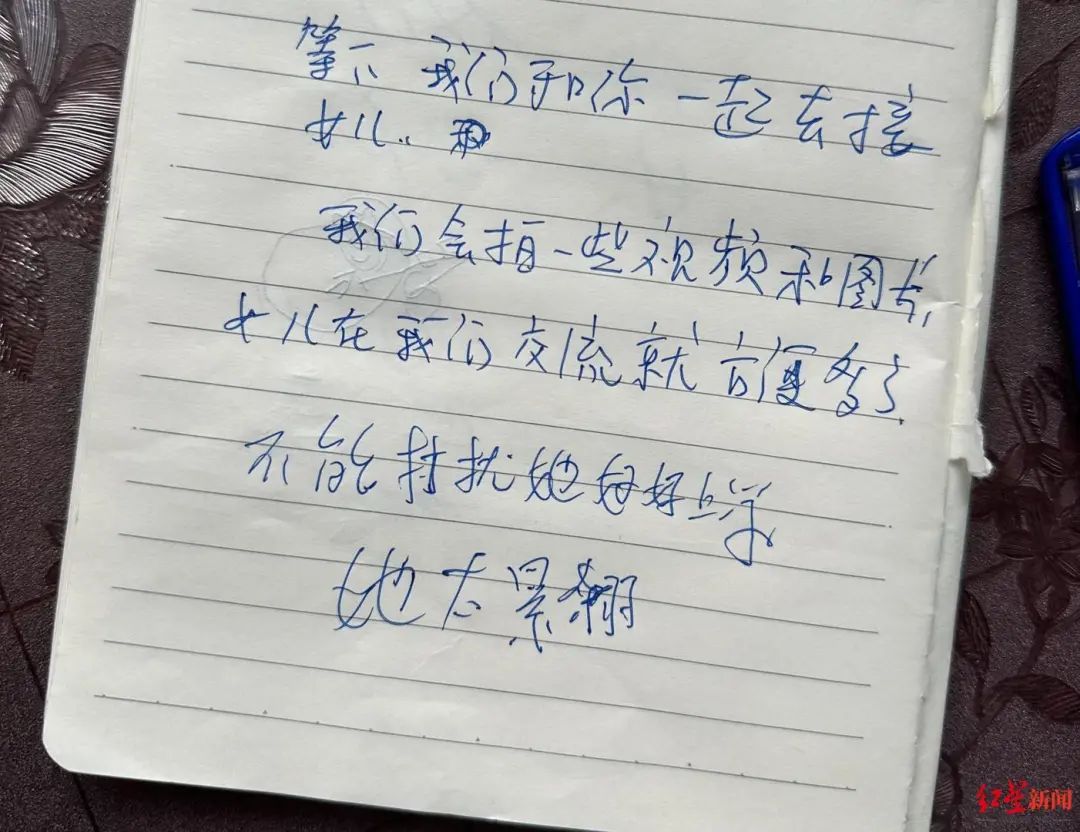 等下我们和你一起去接
女儿..
我们会拍一些视频和图片,
女儿在我们交流就方便多了
不能打扰她好好上学
她太累
红星新闻